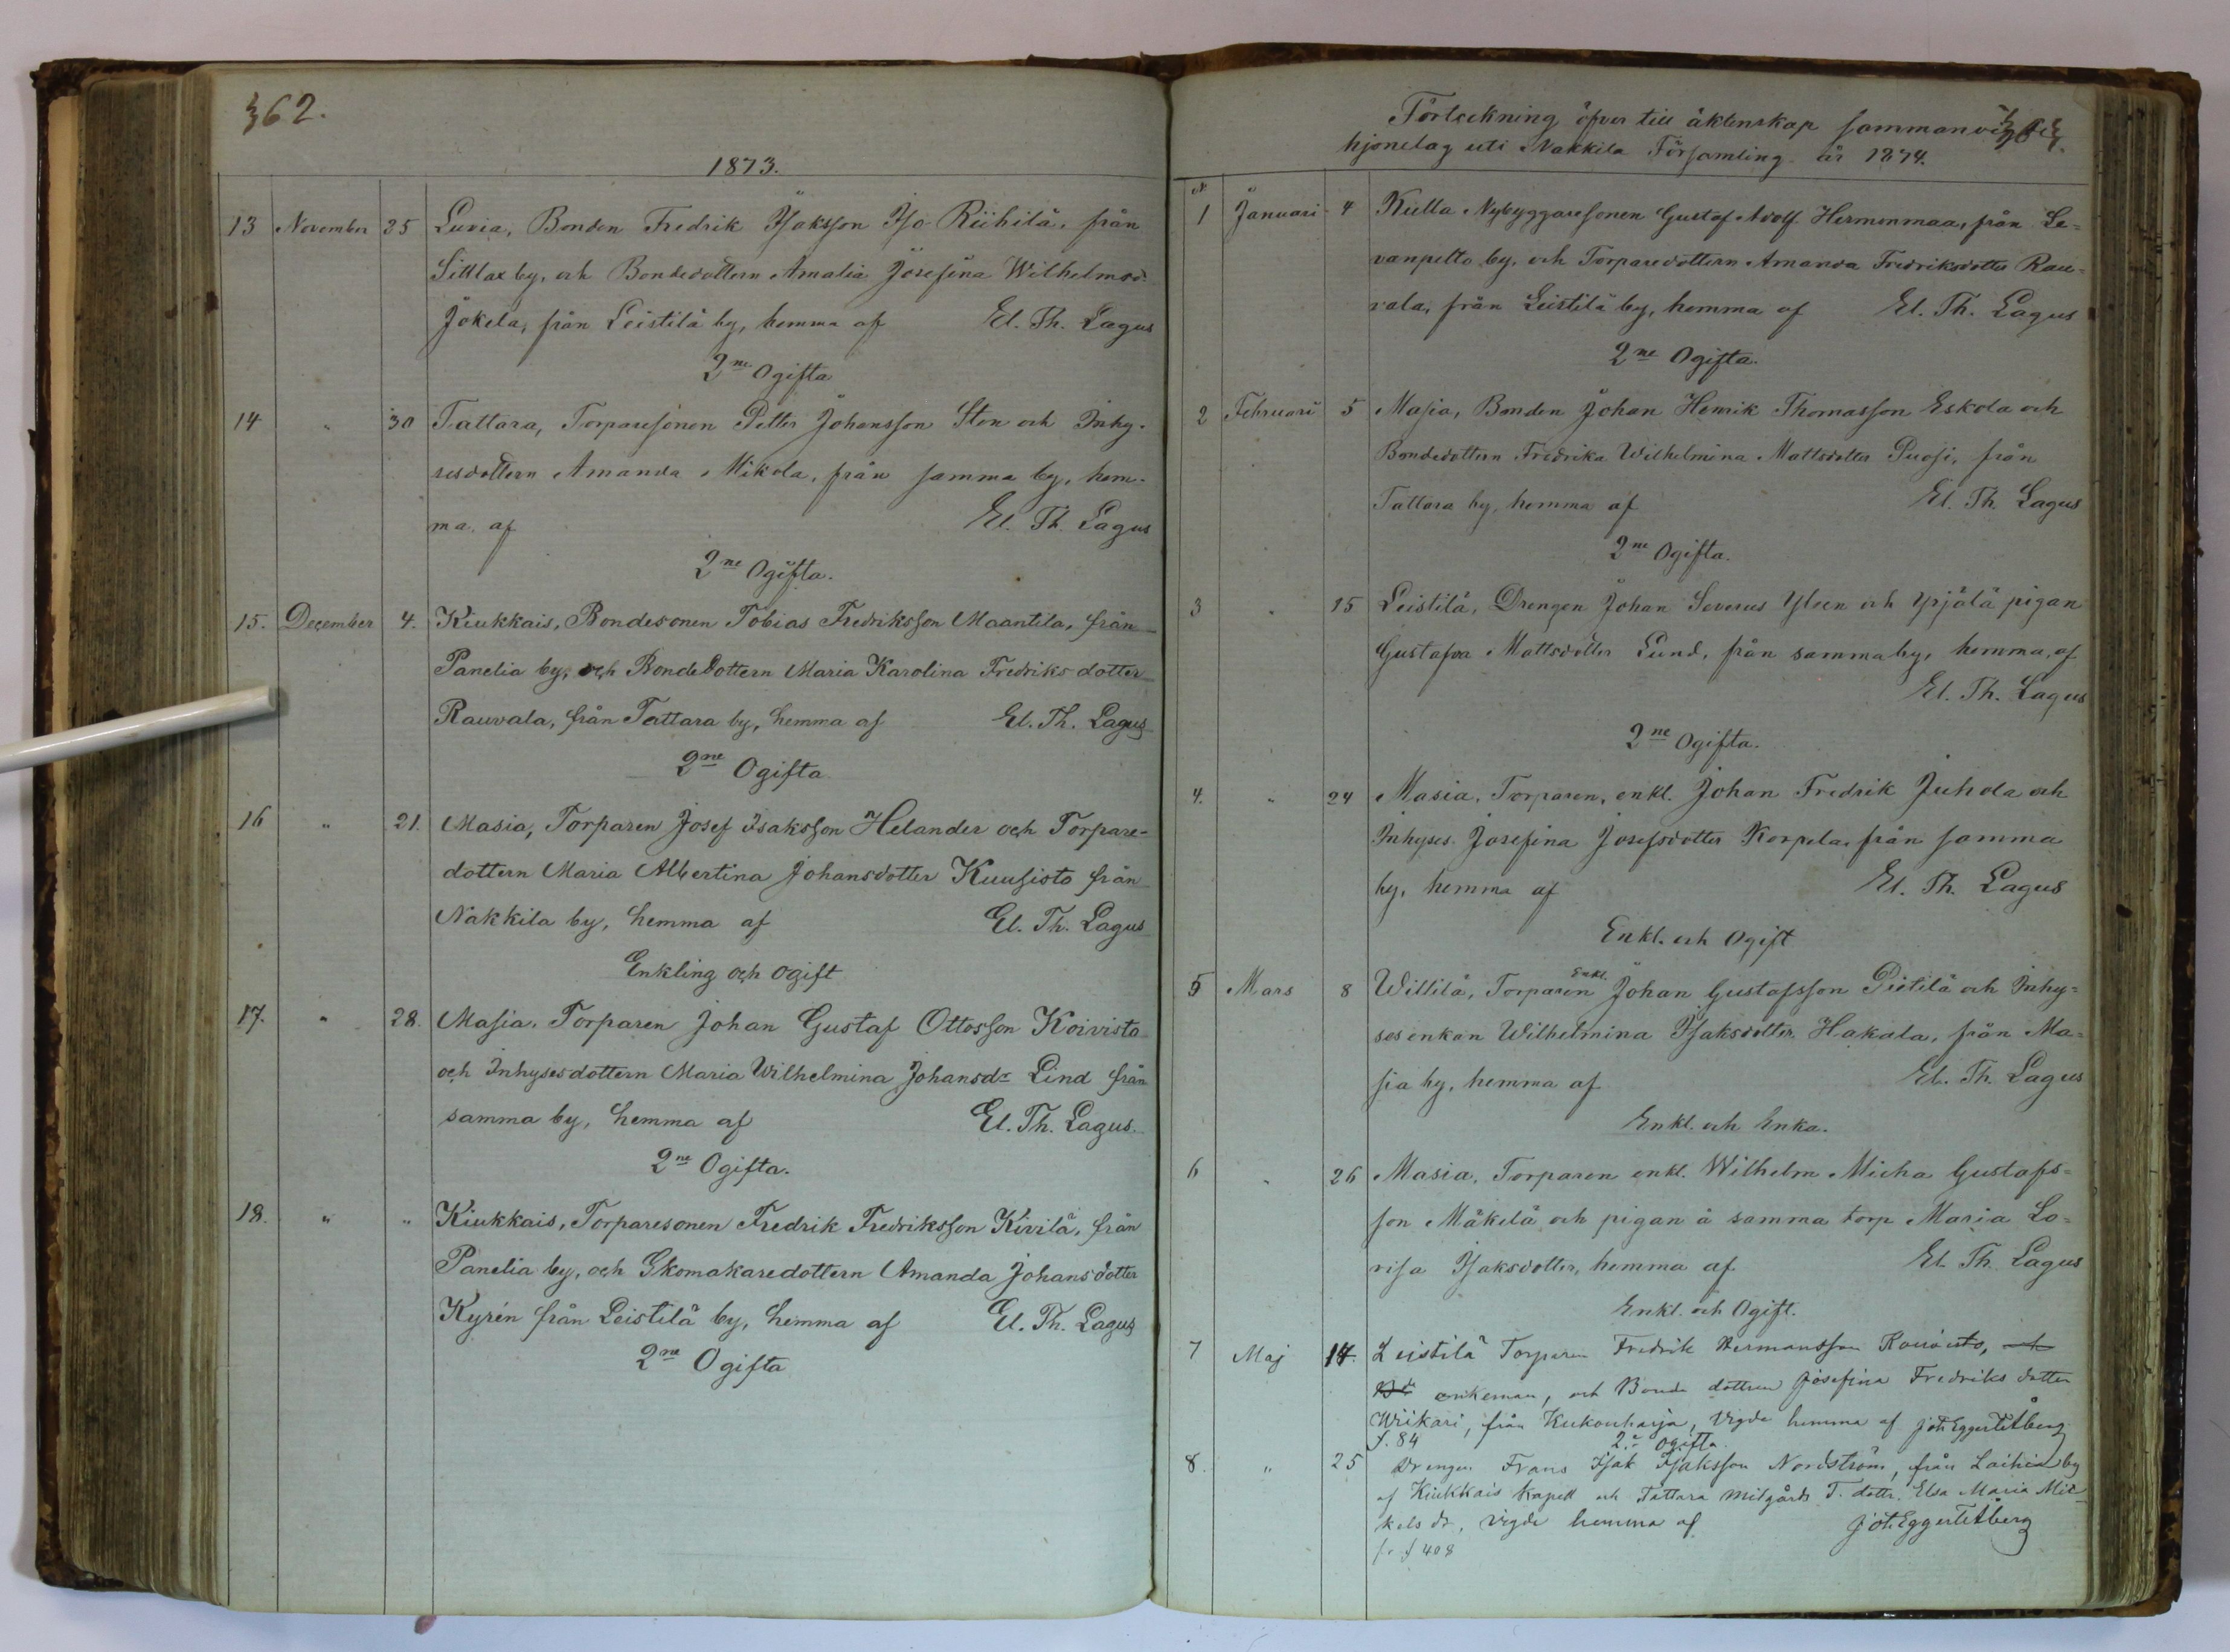 362.
1873.
13 November 25 Luvia, Bonden Fredrik Isaksson Iso-Riihilä, från
Sittlax by, och Bondedottern Amalia Josefina Wilhelmsd:
Jokela, från Leistilä by, hemma af El. Th. Lagus
2ne Ogifta
14 " 30 Tattara, Torparesonen Petter Johansson Sten och Inhy-
sesdottern Amanda Mikola, från samma by, hem-
ma af El. Th. Lagus
2ne Ogifta.
15. December 4. Kiukkais, Bondesonen Tobias Fredriksson Maantila, från
Panelia by, och Bondedottern Maria Karolina Fredriksdotter
Rauvala, från Tattara by, hemma af El. Th. Lagus
2ne Ogifta
16 " 21. Masia, Torparen Josef Isaksson Helander och Torpare-
dottern Maria Albertina Johansdotter Kuusisto från
Nakkila by, hemma af El. Th. Lagus
Enkling och ogift
17. " 28. Masia, Torparen Johan Gustaf Ottosson Koivisto
och Inhysesdottern Maria Wilhelmina Johansdr Lind från
samma by, hemma af El. Th. Lagus.
2ne Ogifta.
18. " " Kiukkais, Torparesonen Fredrik Fredriksson Kivilä, från
Panelia by, och Skomakaredottern Amanda Johansdotter
Kyrén från Leistilä by, hemma af El. Th. Lagus
2ne Ogifta
Förteckning öfver till äktenskap sammanvigde
hjonelag uti Nakkila Församling år 1874.
N
1 Januari 4 Kulla Nybyggaresonen Gustaf Adolf Hermonmaa, från Le-
vanpelto by, och Torparedottern Amanda Fredriksdotter Rau-
vala, från Leistilä by, hemma af El. Th. Lagus
2ne Ogifta.
2 Februari 5 Masia, Bonden Johan Henrik Thomasson Eskola och
Bondedottern Fredrika Wilhelmina Mattsdotter Puosi, från
Tattara by, hemma af El. Th. Lagus
2ne Ogifta.
3 " 15 Leistilä, Drengen Johan Severus Yleen och Ypjälä pigan
Gustafva Mattsdotter Lund, från samma by, hemma, af
El. Th. Lagus
2ne Ogifta.
4. " 24 Masia, Torparen, enkl. Johan Fredrik Juhola och
Inhyses. Josefina Josefsdotter Korpela, från samma
by, hemma af El. Th. Lagus
Enkl. och Ogift
5 Mars 8 Willilä, Torparen Enkl. Johan Gustafsson Pietilä och Inhy-
sesenkan Wilhelmina Isaksdotter Hakala, från Ma-
sia by, hemma af El. Th. Lagus
Enkl. och Enka.
6 " 26 Masia, Torparen enkl. Wilhelm Micha Gustafs-
son Mäkelä och pigan å samma torp Maria Lo-
visa Isaksdotter, hemma af El. Th. Lagus
Enkl. och Ogift.
7 Maj 14. Leistilä Torparen Fredrik Hermansson Koivisto, och
enkeman, och Bonde dottren Josefina Fredriks dotter
Wiikari, från Kukonharja, Vigde hemma af Joh Eggert Åberg
f. 84 2.e ogifta.
8. " 25 Drengen Frans Isak Isaksson Nordström, från Laihia by
af Kiukkais Kapell och Tattara Mitgårds T. dottr. Elsa Maria Mic-
kels dr, vigde hemma af Joh. Eggert Åberg
f 408